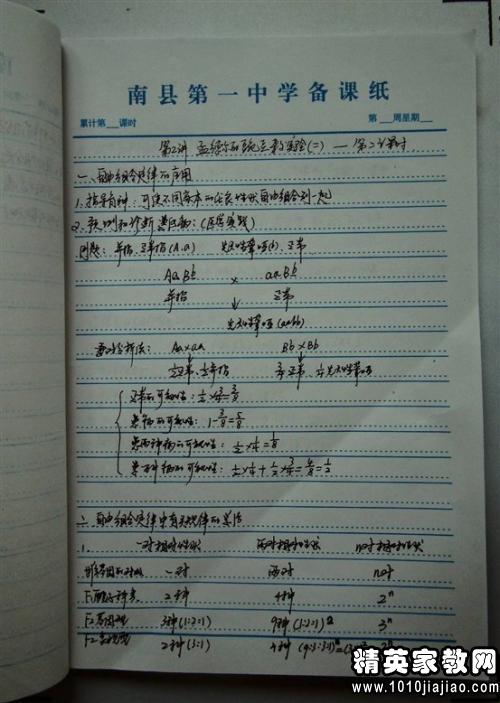 南县第一中学备课纸
累计第 课时 第 周星期
第2讲 孟德尔的豌豆杂交实验(二) — 第2课时
一、自由组合定律的应用
1. 指导育种：可使不同亲本的优良性状自由组合到一起
2. 预测和诊断遗传病：(医学实践)
例题： 并指、正常指(A、a) 先天性聋哑(b)、正常
AaBb × aaBb
并指 ↓ 正常
先天性聋哑(aabb)
Aa×aa Bb×Bb
正常的可能性：½×¾=3/8
患病的可能性：1-3/8=5/8
患两种病的可能性：½×¼=1/8
患一种病的可能性：½×¼+½×¾=4/8=½
二、自由组合定律中有关规律的总结
1. 一对相对性状 两对相对性状 n对相对性状
等位基因的对数 一对 两对 n对
F₁配子种类 2种 4种 2ⁿ
F₂基因型 3种(1:2:1) 9种(1:2:1)² 3ⁿ
F₂表现型 2种(3:1) 4种(9:3:3:1)
精英家教网
http://www.1010jiajiao.com